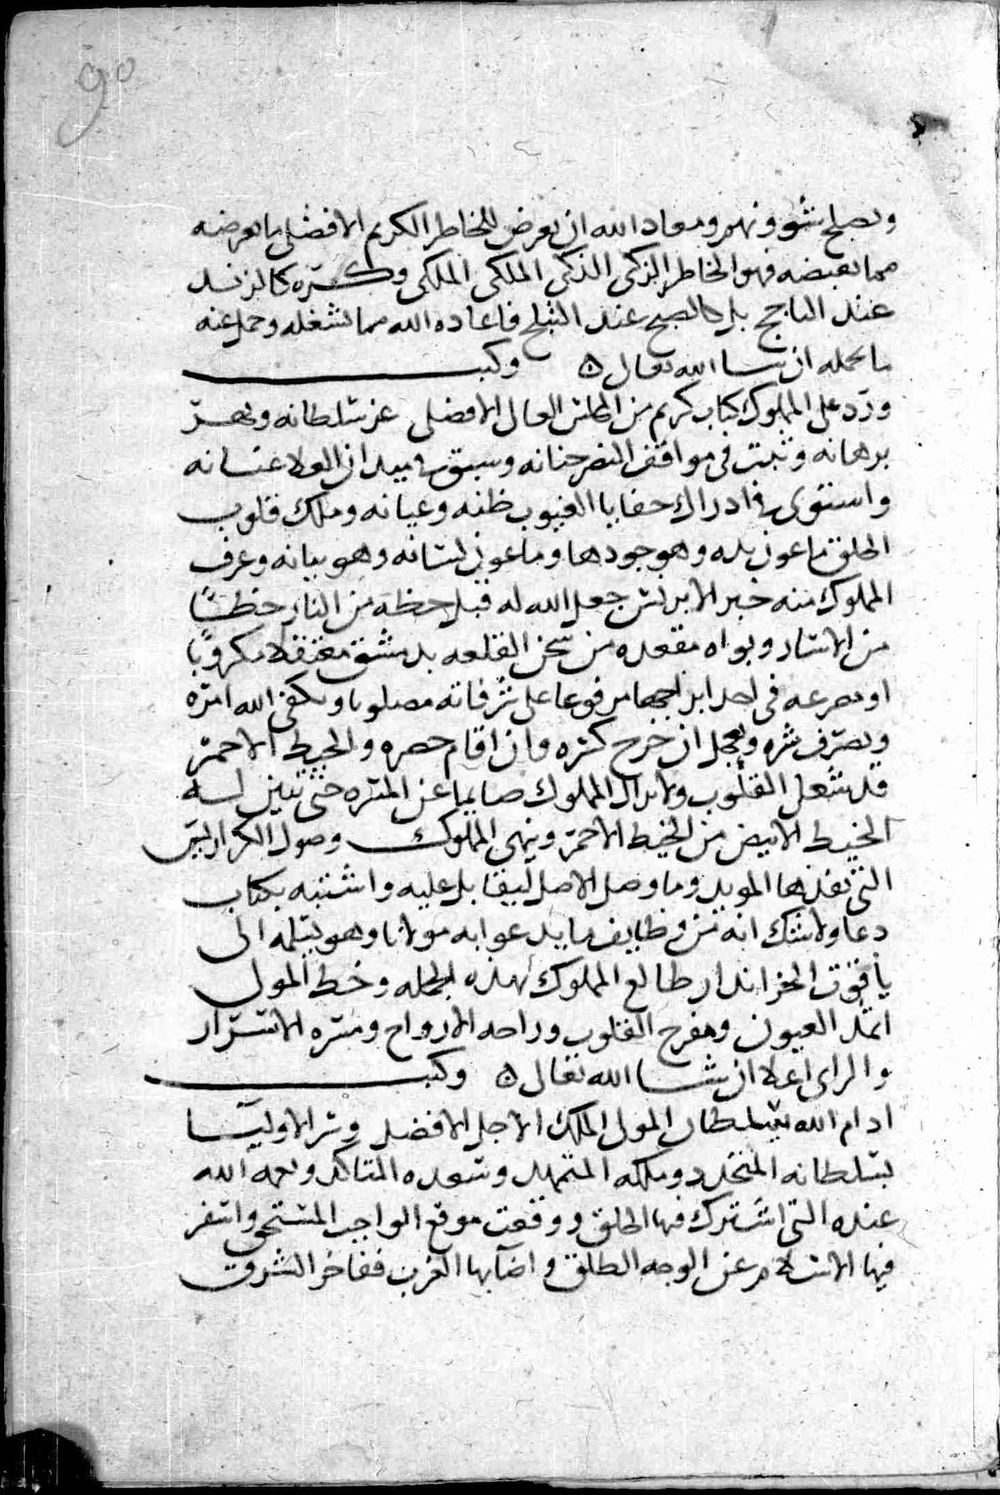 ٩٥
ويصلح شؤونهم ومعاذ الله ان يعرض للخاطر الكريم الافضلي ما يعرضه
مما يقبضه فهو الخاطر الزكي الذكي الملكي الملكي وكثره كالزند
عند بل كالصبح عند الثلج فاعاده الله مما يشغله وحمل عنه
ما يحمله ان شا الله تعالى ٥ وكتب
ورد على المملوك كتاب كريم من المجلس العالي الافضلي عز سلطانه وبهر
برهانه وثبت في مواقف النصر جنانه وسبق في ميدان العلا عنانه
واستوى في ادراك خفايا الغيوب ظنه وعيانه وملك قلوب
الخلق ماعون يده وهو جودها وماعون لسانه وهو بيانه وعرف
المملوك منه خبر الابرنس جعل الله له قبل حظه من النار حظا
من الاسار وبواه مقعده من سجن القلعه بدمشق معتقلا مكروبا
او مصرعه في احد ابراجها مرفوعا على شرفاته مصلوبا ويكفي الله امره
ويصرف شره ويعجل ان خرج كسره وان اقام حصره والخيط الاحمر
قد شغل القلوب ولا يزال المملوك صايما عن المسره حتى يتبين له
الخيط الابيض من الخيط الاحمر وينهي المملوك وصول الكراريس
التي نفذها المويد وما وصل الاصل ليقابل عليه واشتبه بكتاب
دعا ولا شك انه من وظايف ما يدعو به مولانا وهو يسلمه الى
ياقوت الخزاندار طالع المملوك بهذه الجمله وخط المولى
اثمد العيون ومفرح القلوب وراحه الارواح ومسره الاسرار
والراي اعلا ان شا الله تعالى ٥ وكتب
ادام الله سلطان المولى الملك الاجل الافضل وسر الاوليا
بسلطانه المتجدد وملكه المتمهد وسعده المتاكد ونعمه الله
عنده التي اشترك فيها الخلق ووقعت موقع الواجب المستحق واسفر
فيها الاسلام عن الوجه الطلق واضا بها الغرب ففاخر الشرق